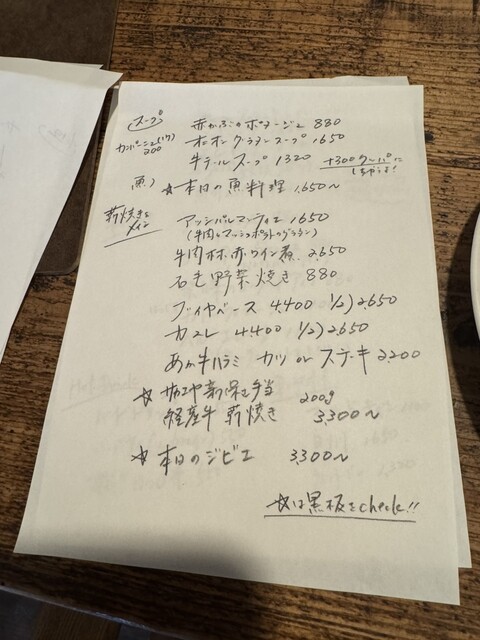 スープ 赤かぶのポタージュ 880
オニオングラタンスープ 1650
200
牛テールスープ 1320 +300クッパに
しちゃうよ!
魚) ☆本日の魚料理 1,650〜
薪焼きと
メイン アッシパルマンティエ 1650
(牛肉とマッシュポテトのグラタン)
牛肉 赤ワイン煮 2,650
野菜焼き 880
ブイヤベース 4,400 1/2) 2,650
カスレ 4,400 1/2) 2,650
あか牛ハラミ カツ or ステキ 2,200
☆サカエヤ新保さん手当 200g
経産牛 薪焼き 3,300〜
☆本日のジビエ 3,300〜
☆は黒板をcheck!!